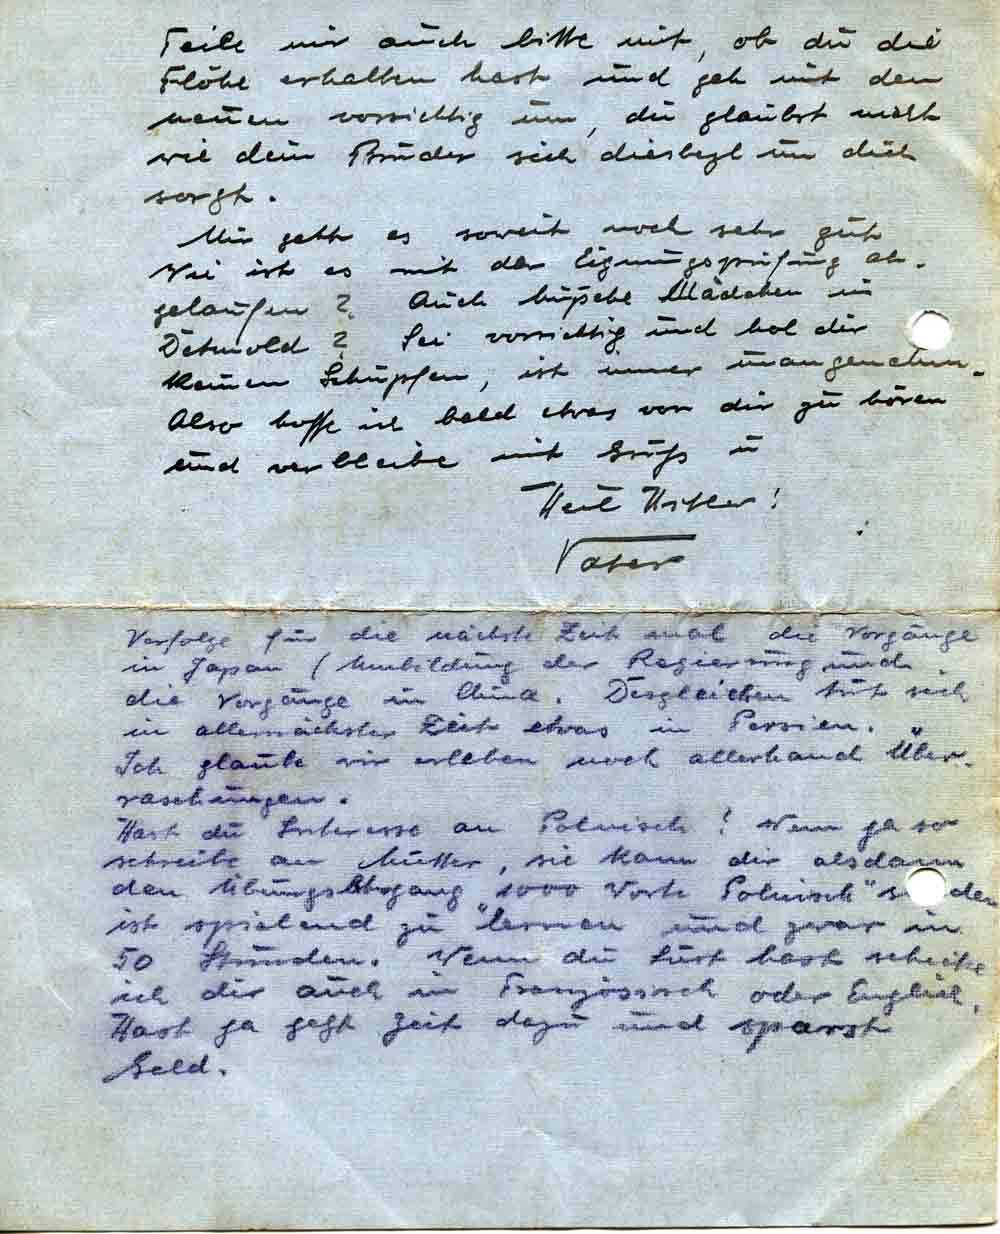 Teile mir auch bitte mit, ob du die
Flöhe erhalten hast und geh mit den
neuen vorsichtig um, du glaubst nicht
wie dein Bruder sich diesbezl um dich
sorgt.
Mir geht es soweit noch sehr gut
Wie ist es mit der Eignungsprüfung ab-
gelaufen? Auch hüpsche Mädchen in
Detmold? Sei vorsichtig und hol dir
keinen Schnupfen, ist immer unangenehm.
Also hoffe ich bald etwas von dir zu hören
und verbleibe mit Gruß u
Heil Hitler!
Vater
Verfolge für die nächste Zeit mal die Vorgänge
in Japan / Umbildung der Regierung und
die Vorgänge in China. Desgleichen tut sich
in allernächster Zeit etwas in Persien.
Ich glaube wir erleben noch allerhand Über-
raschungen.
Hast du Interesse an Polnisch! Wenn ja so
schreibe an Mutter, sie kann dir alsdann
den "1000 Worte Polnisch" senden
ist spielend zu lernen und zwar in
50 Stunden. Wenn du Lust hast schicke
ich dir auch in Französisch oder Englisch.
Hast ja jetzt Zeit dazu und sparst
Geld.